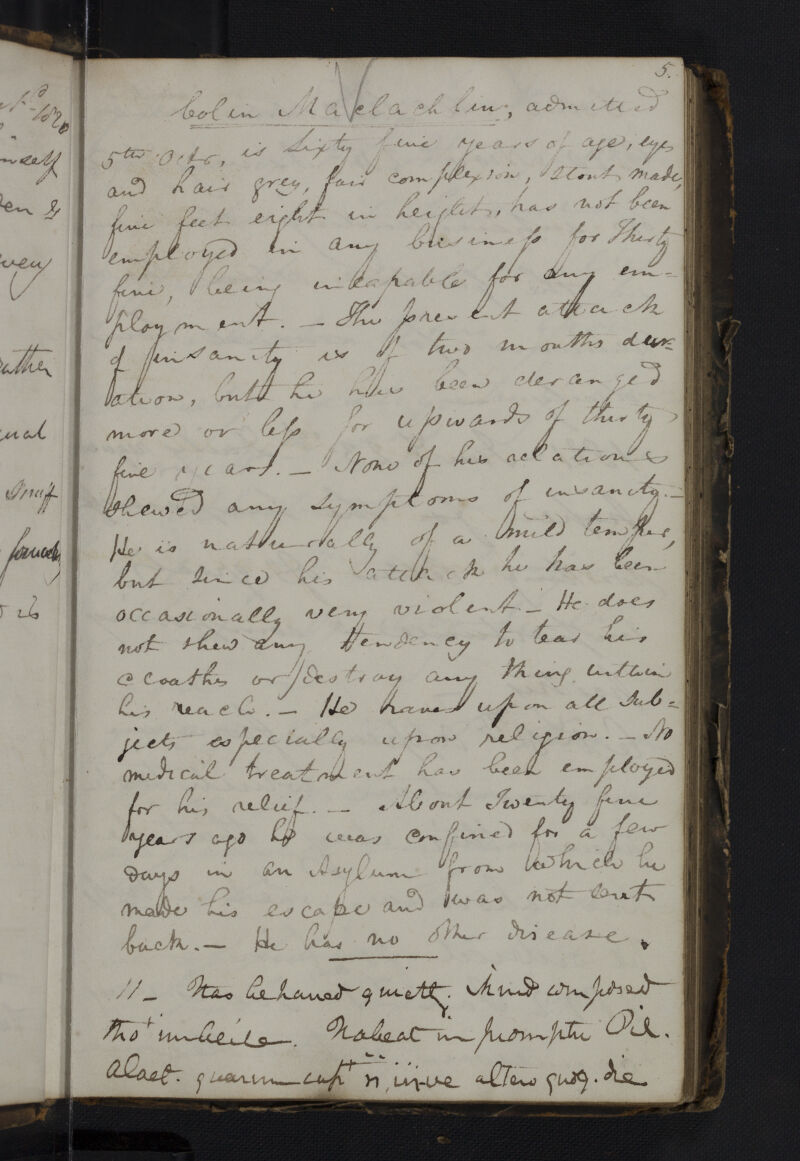 5.
Colin Maclachlin, admitted
5th Octr, is Sixty five years of age, eyes
and hair grey, fair complexion, stout made,
five feet eight in height, has not been
employed in any business for Thirty
five, being incapable for any em-
ployment. — The present attack
of insanity is of two months dur-
ation, but he has been deranged
more or less for upwards of thirty
five years. — None of his relations
shewed any symptoms of insanity. —
He is naturally of a mild temper,
but since his attack he has been
occasionally very violent — He does
not shew any tendency to tear his
cloaths or destroy any thing within
his reach. — He raves upon all sub=
jects especially upon religion. — No
medical treatment has been employed
for his relief. — About Twenty five
years ago he was confined for a few
days in an Asylum from which he
made his escape and was not sent
back. — He has no other disease.
11 — Has behaved quietly. Mind composed
tho' imbecile. Habeat in promptu Pil.
Aloet. quarum capt ii, iiive altero quoq. die
1820
mself
en &
very
rather
Snuff